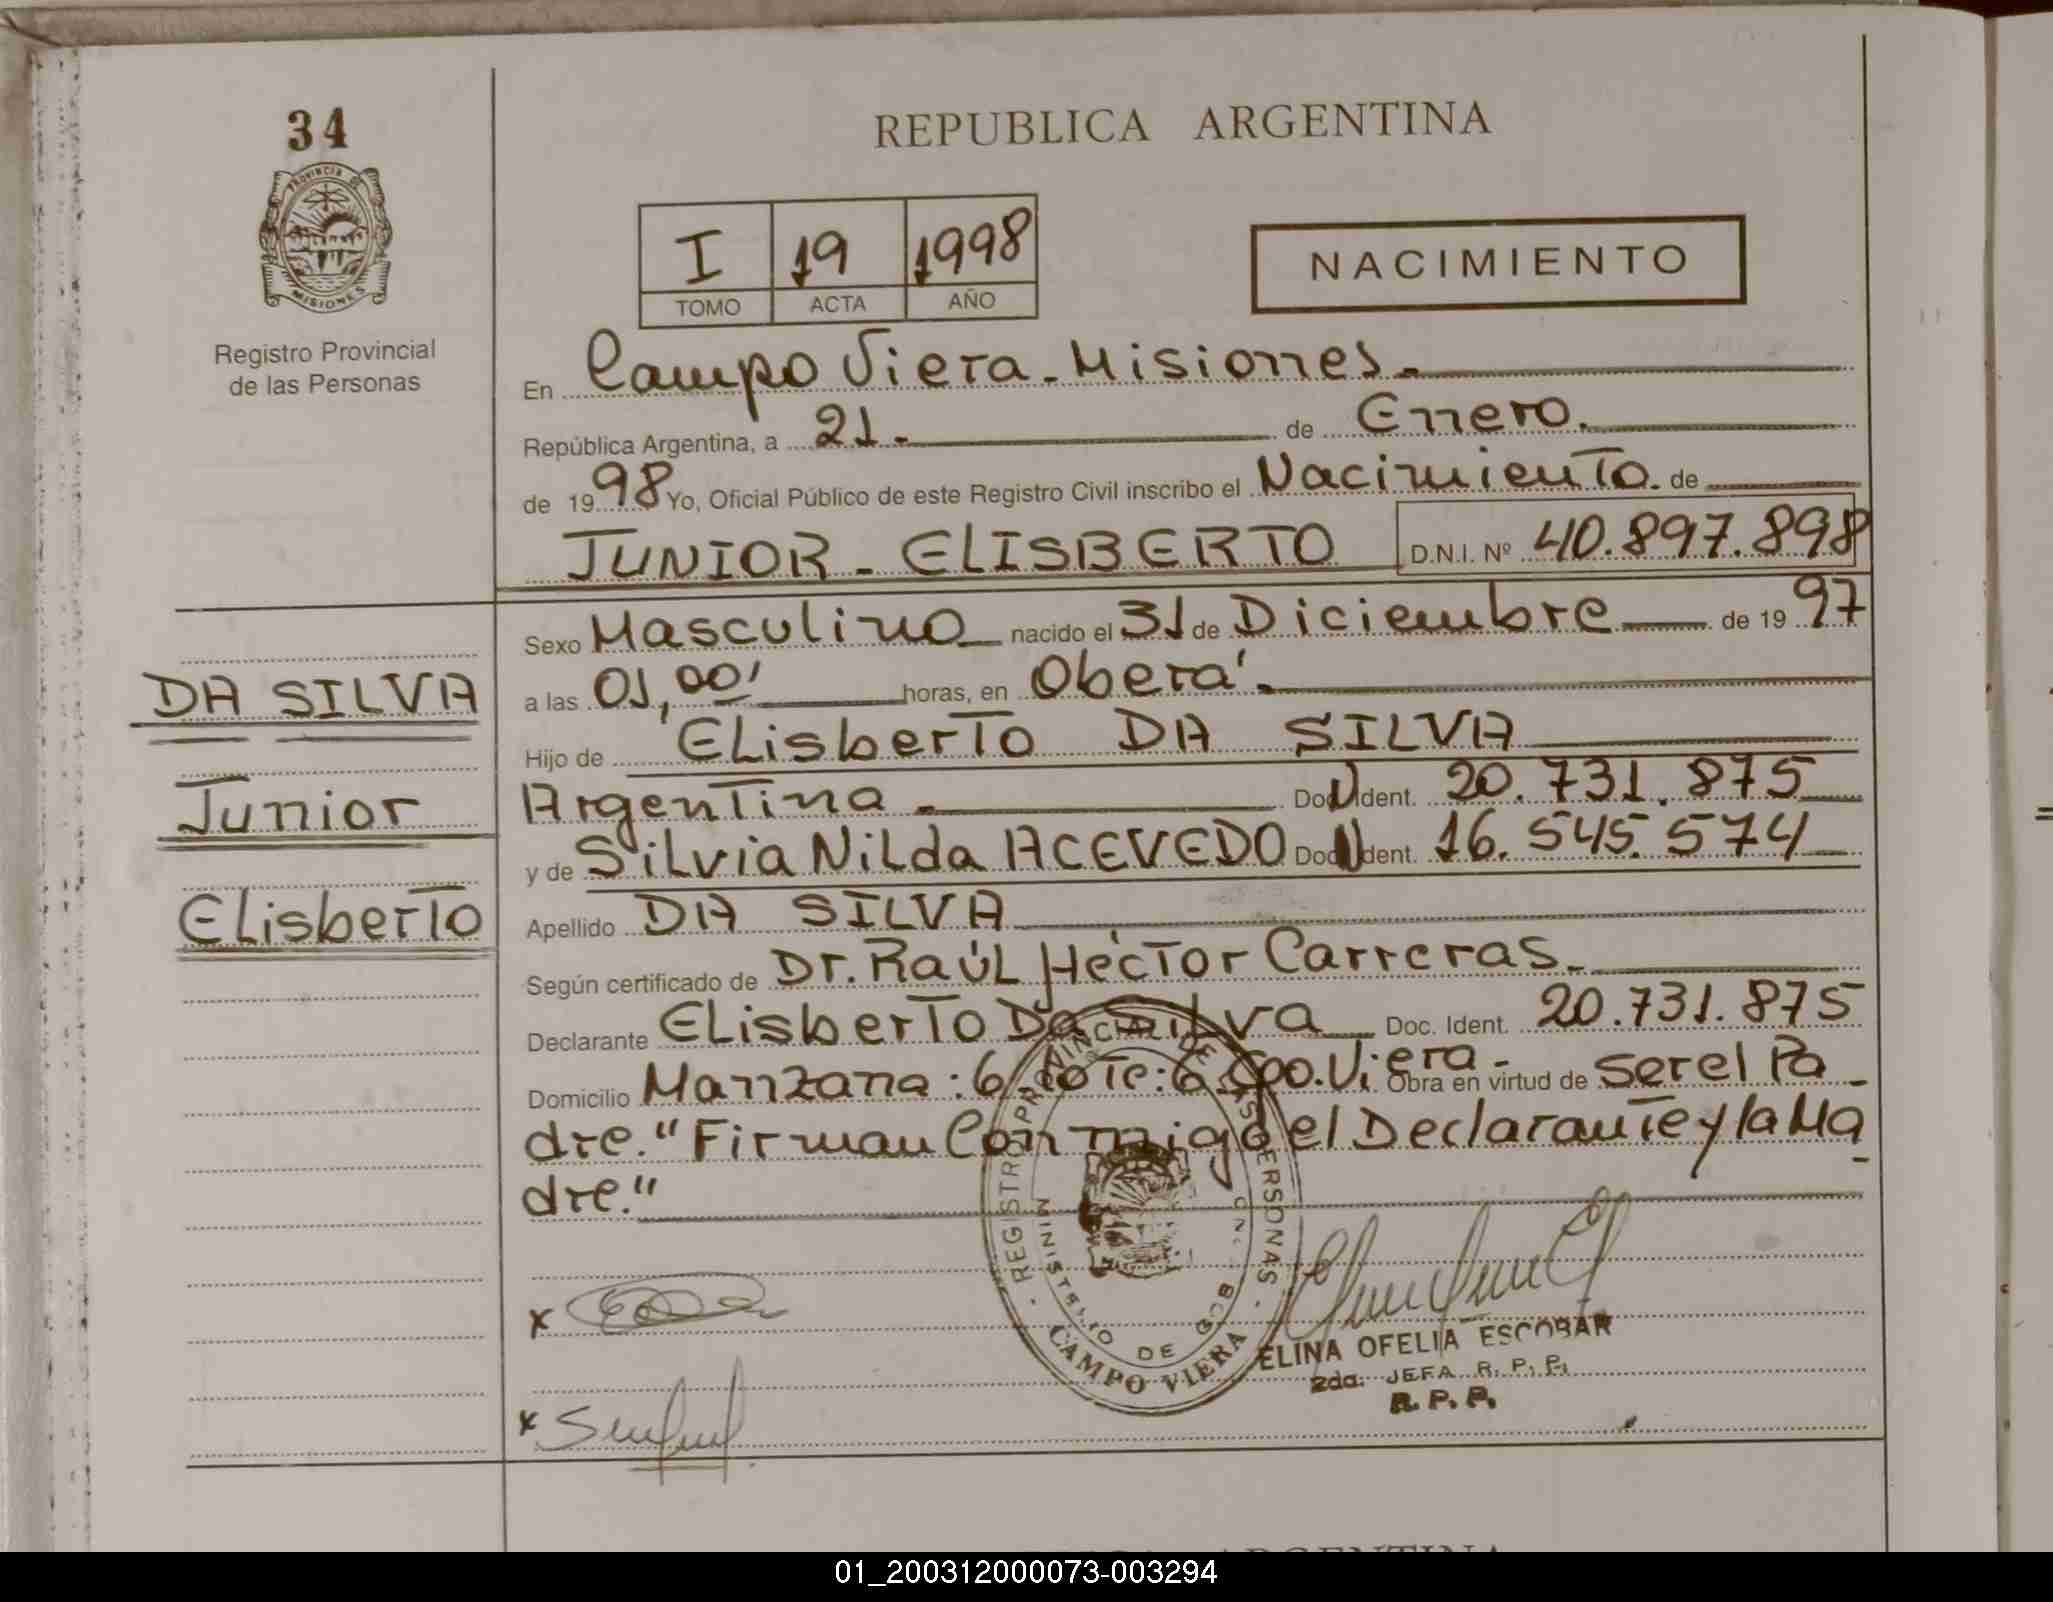 34
REPUBLICA ARGENTINA
PROVINCIA DE
MISIONES
Registro Provincial
de las Personas
I 19 1998
TOMO ACTA AÑO
NACIMIENTO
En Campo Viera - Misiones.
República Argentina, a 21. de Enero.
de 19 98 Yo, Oficial Público de este Registro Civil inscribo el Nacimiento. de
JUNIOR - ELISBERTO D.N.I. Nº 40.897.898
Sexo Masculino nacido el 31 de Diciembre de 19 97
a las 01,00' horas, en Oberá.
Hijo de Elisberto DA SILVA
Argentina. Doc. Ident. 20.731.875
y de Silvia Nilda ACEVEDO Doc. Ident. 16.545.574
Apellido DA SILVA
Según certificado de Dr. Raúl Héctor Carreras.
Declarante Elisberto Da Silva Doc. Ident. 20.731.875
Domicilio Manzana: 6 Lote: 6 Cpo. Viera - Obra en virtud de ser el Pa
dre. "Firman Conmigo el Declarante y la Ma
dre."
DA SILVA
Junior
Elisberto
REGISTRO PROVINCIAL DE LAS PERSONAS
MINISTERIO DE GOB
CAMPO VIERA
x
x
ELINA OFELIA ESCOBAR
2da. JEFA R. P. P.
R. P. P.
ARGENTINA
01_200312000073-003294